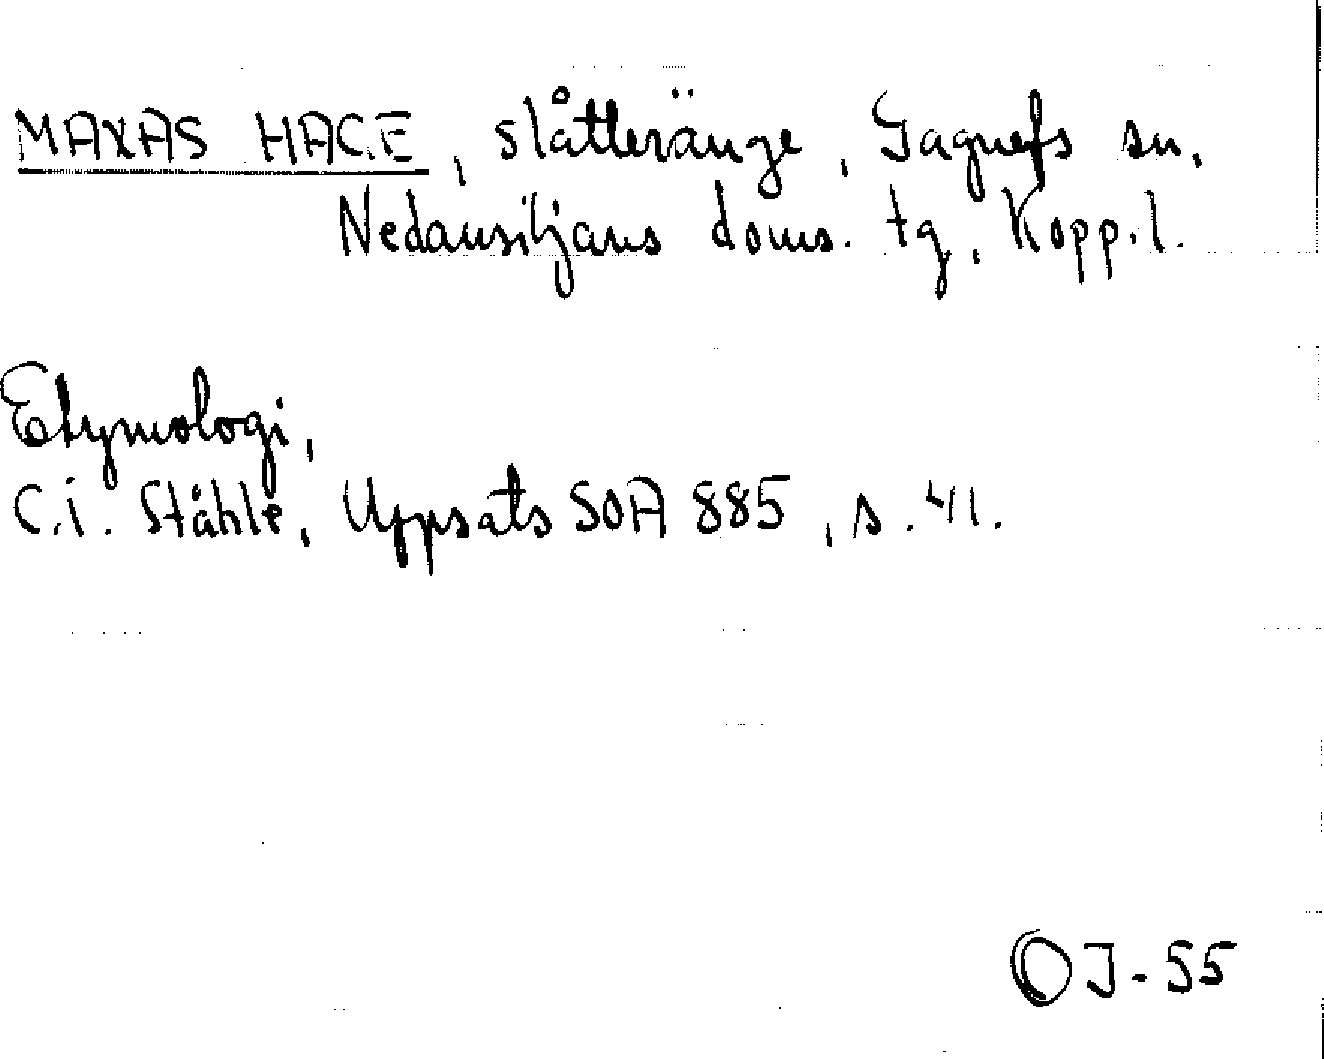 MAXAS HAGE, slåtteränge, Gagnefs sn.
Nedansiljans doms. tg, Kopp.l.
Etymologi,
C.I. Ståhle, Uppsats SOA 885, s. 41.
OJ-55